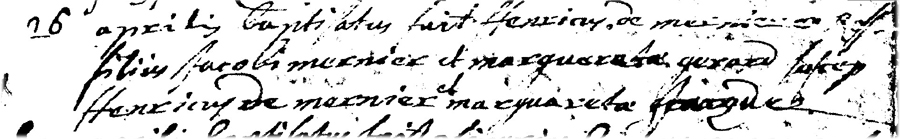 26 aprilis baptisatus fuit Henricus de mernier
filius Jacobi mernier et marguareta gerard suscep
Henricus de mernier et marguareta